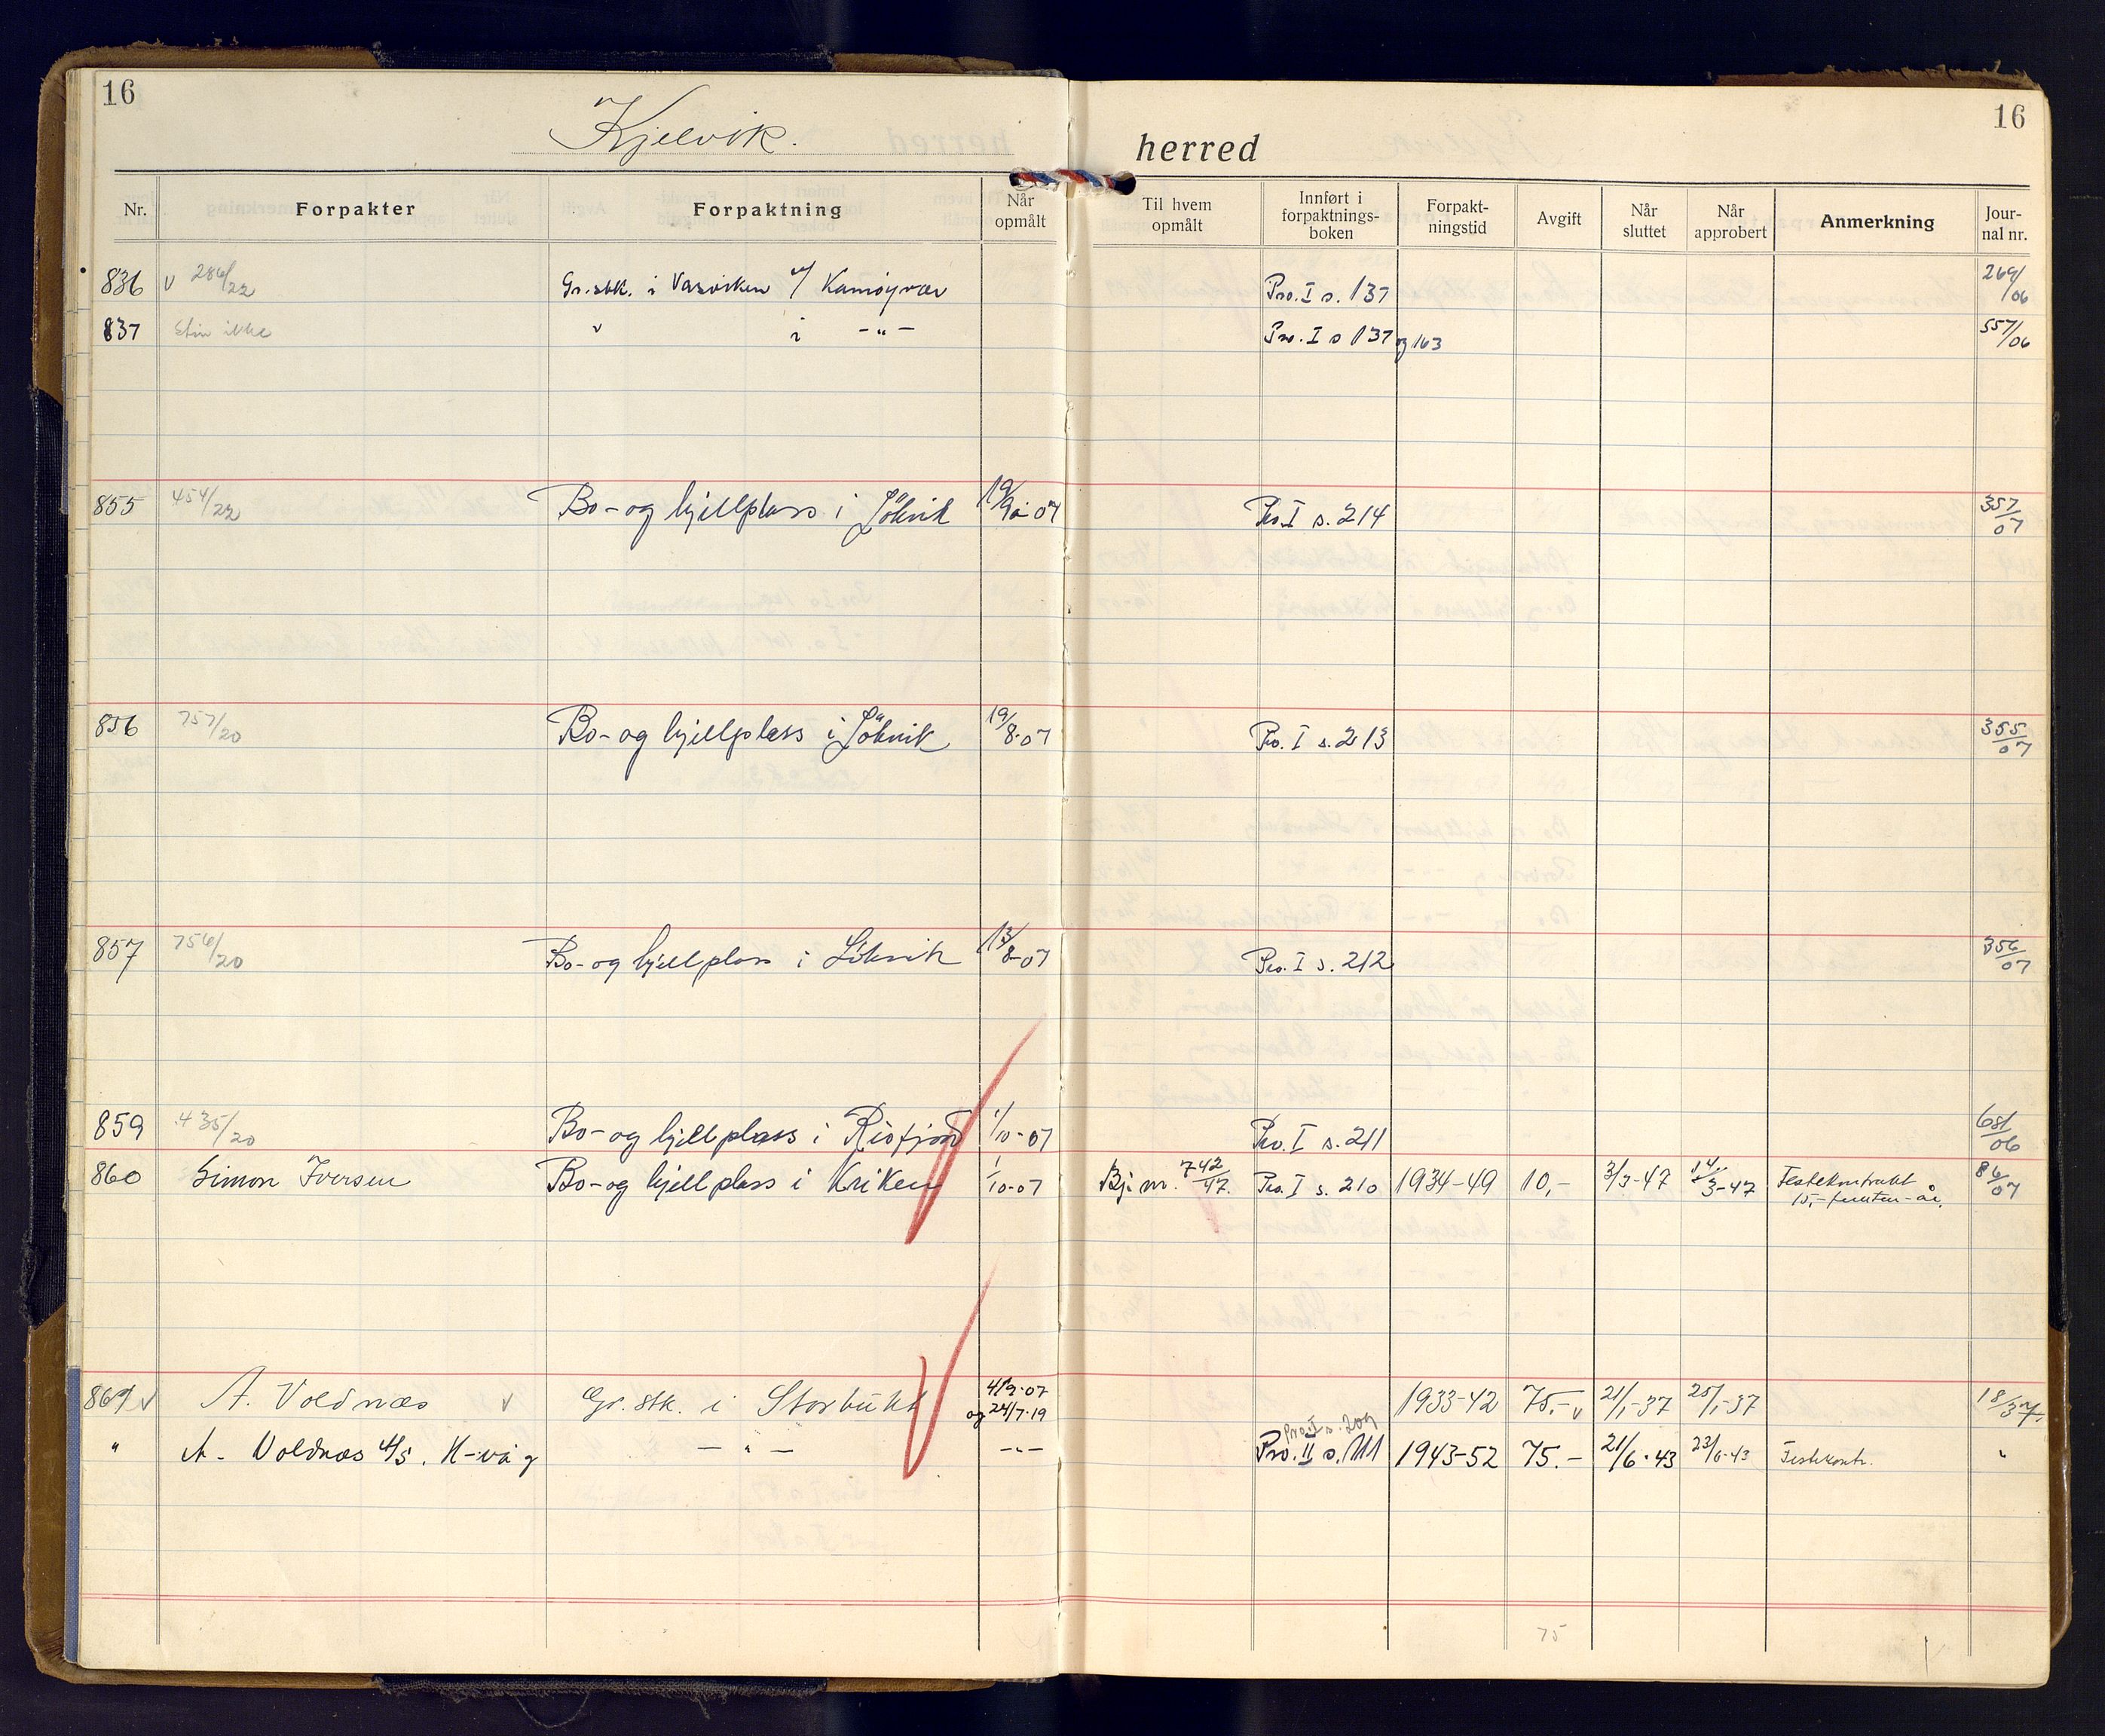 16
16
Kjelvik.
herred
Nr. Forpakter Forpaktning Når opmålt Til hvem opmålt Innført i forpaktnings-boken Forpakt-ningstid Avgift Når sluttet Når approbert Anmerkning Jour-nal nr.
836 v 286/22 Gr.stk. i Vasviken v/ Kamøyvær Pro. I s. 137 269/06
837 Stin ikke " i -"- Pro. I s 137 og 163 557/06
855 454/22 Bo- og hjellplass i Lökvik Pro. I s. 214 357/07
856 757/20 Bo- og hjellplass i Lökvik 19/8-07 Pro. I s. 213 355/07
857 756/20 Bo- og hjellplass i Lökvik 13/8-07 Pro. I s. 212 356/07
859 435/20 Bo- og hjellplass i Risfjord 1/10-07 Pro. I s. 211 681/06
860 Simon Iversen Bo- og hjellplass i Kriken 1/10-07 Bj.nr. 742/47. Pro. I s. 210 1934-49 10,- 3/3-47 14/3-47 Festekontrakt 86/07
15,- femten - år.
861 v A. Voldnæs v Gr. stk. i Storbukt 4/9-07 1933-42 75.- v 21/1-37 25/1-37 18/37.
og 24/7-19
Pro. I s. 209
" A. Voldnæs A/S. H-våg - " - -"- Pro. II s. 111 1943-52 75.- 21/6-43 23/6-43 Festekontr. "
75